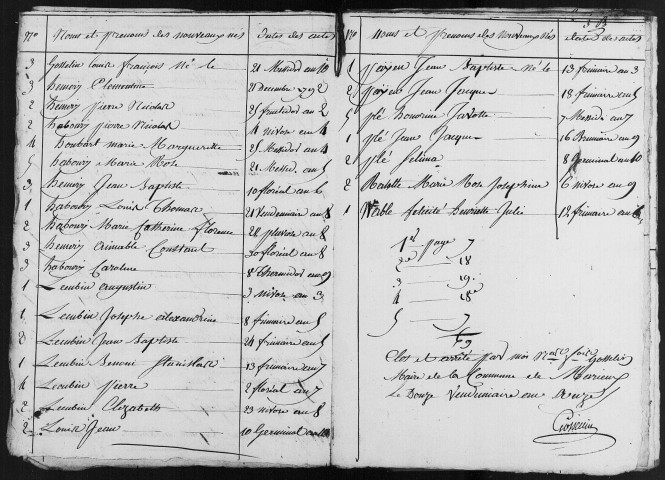 No Noms et prenoms des nouveaux nés Dates des actes
3 Gosselin Louis François Né le 21 Messidor an 10
3 hemery Clementine 21 decembre 1792
2 hemery pierre Nicolas 25 fructidor an 2
2 habourg pierre Nicolas 4 nivose an 4
4 houbart marie Marguerite 25 Messidor an 4
5 habourg Marie Rose 21 Messid. an 5
3 hemery Jean Baptiste 10 floréal an 6
1 habourg Louis Thomas 21 Vendemiaire an 8
2 habourg Marie Catherine Florence 28 pluviose an 8
3 hemery Aimable Constant 30 floréal an 8
3 habourg Caroline 8 thermidor an 9
1 Leubin Augustin 3 nivose an 3
1 Leubin Josephe Alexandrine 8 frimaire an 5
2 Leubin Jean Baptiste 24 frimaire an 5
1 Leubin Benoni Stanislas 13 frimaire an 7
4 Leubin Pierre 2 floréal an 7
2 Leubin Elizabeth 23 nivose an 8
2 Louis Jean 10 Germinal an
No Noms et prenoms des nouveaux Nés Dates des actes
1 Jean Baptiste né le 13 frimaire an 3
2 Jean Jacques 18 frimaire an 5
5 plé honorine Javotte 7 Messidor an 7
1 plé Jean Jacques 16 Brumaire an 9
2 plé Felima 8 Germinal an 10
2 Marie Rose Josephine 6 nivose an 9
1 felicité henriette Julie 12 frimaire an
1er page 7
2e 18
3 19
4 18
5 7
69
Clos et arrêté par moi Gosselin
Maire de la Commune de Marieux
Le Douze Vendemiaire an
Gosselin